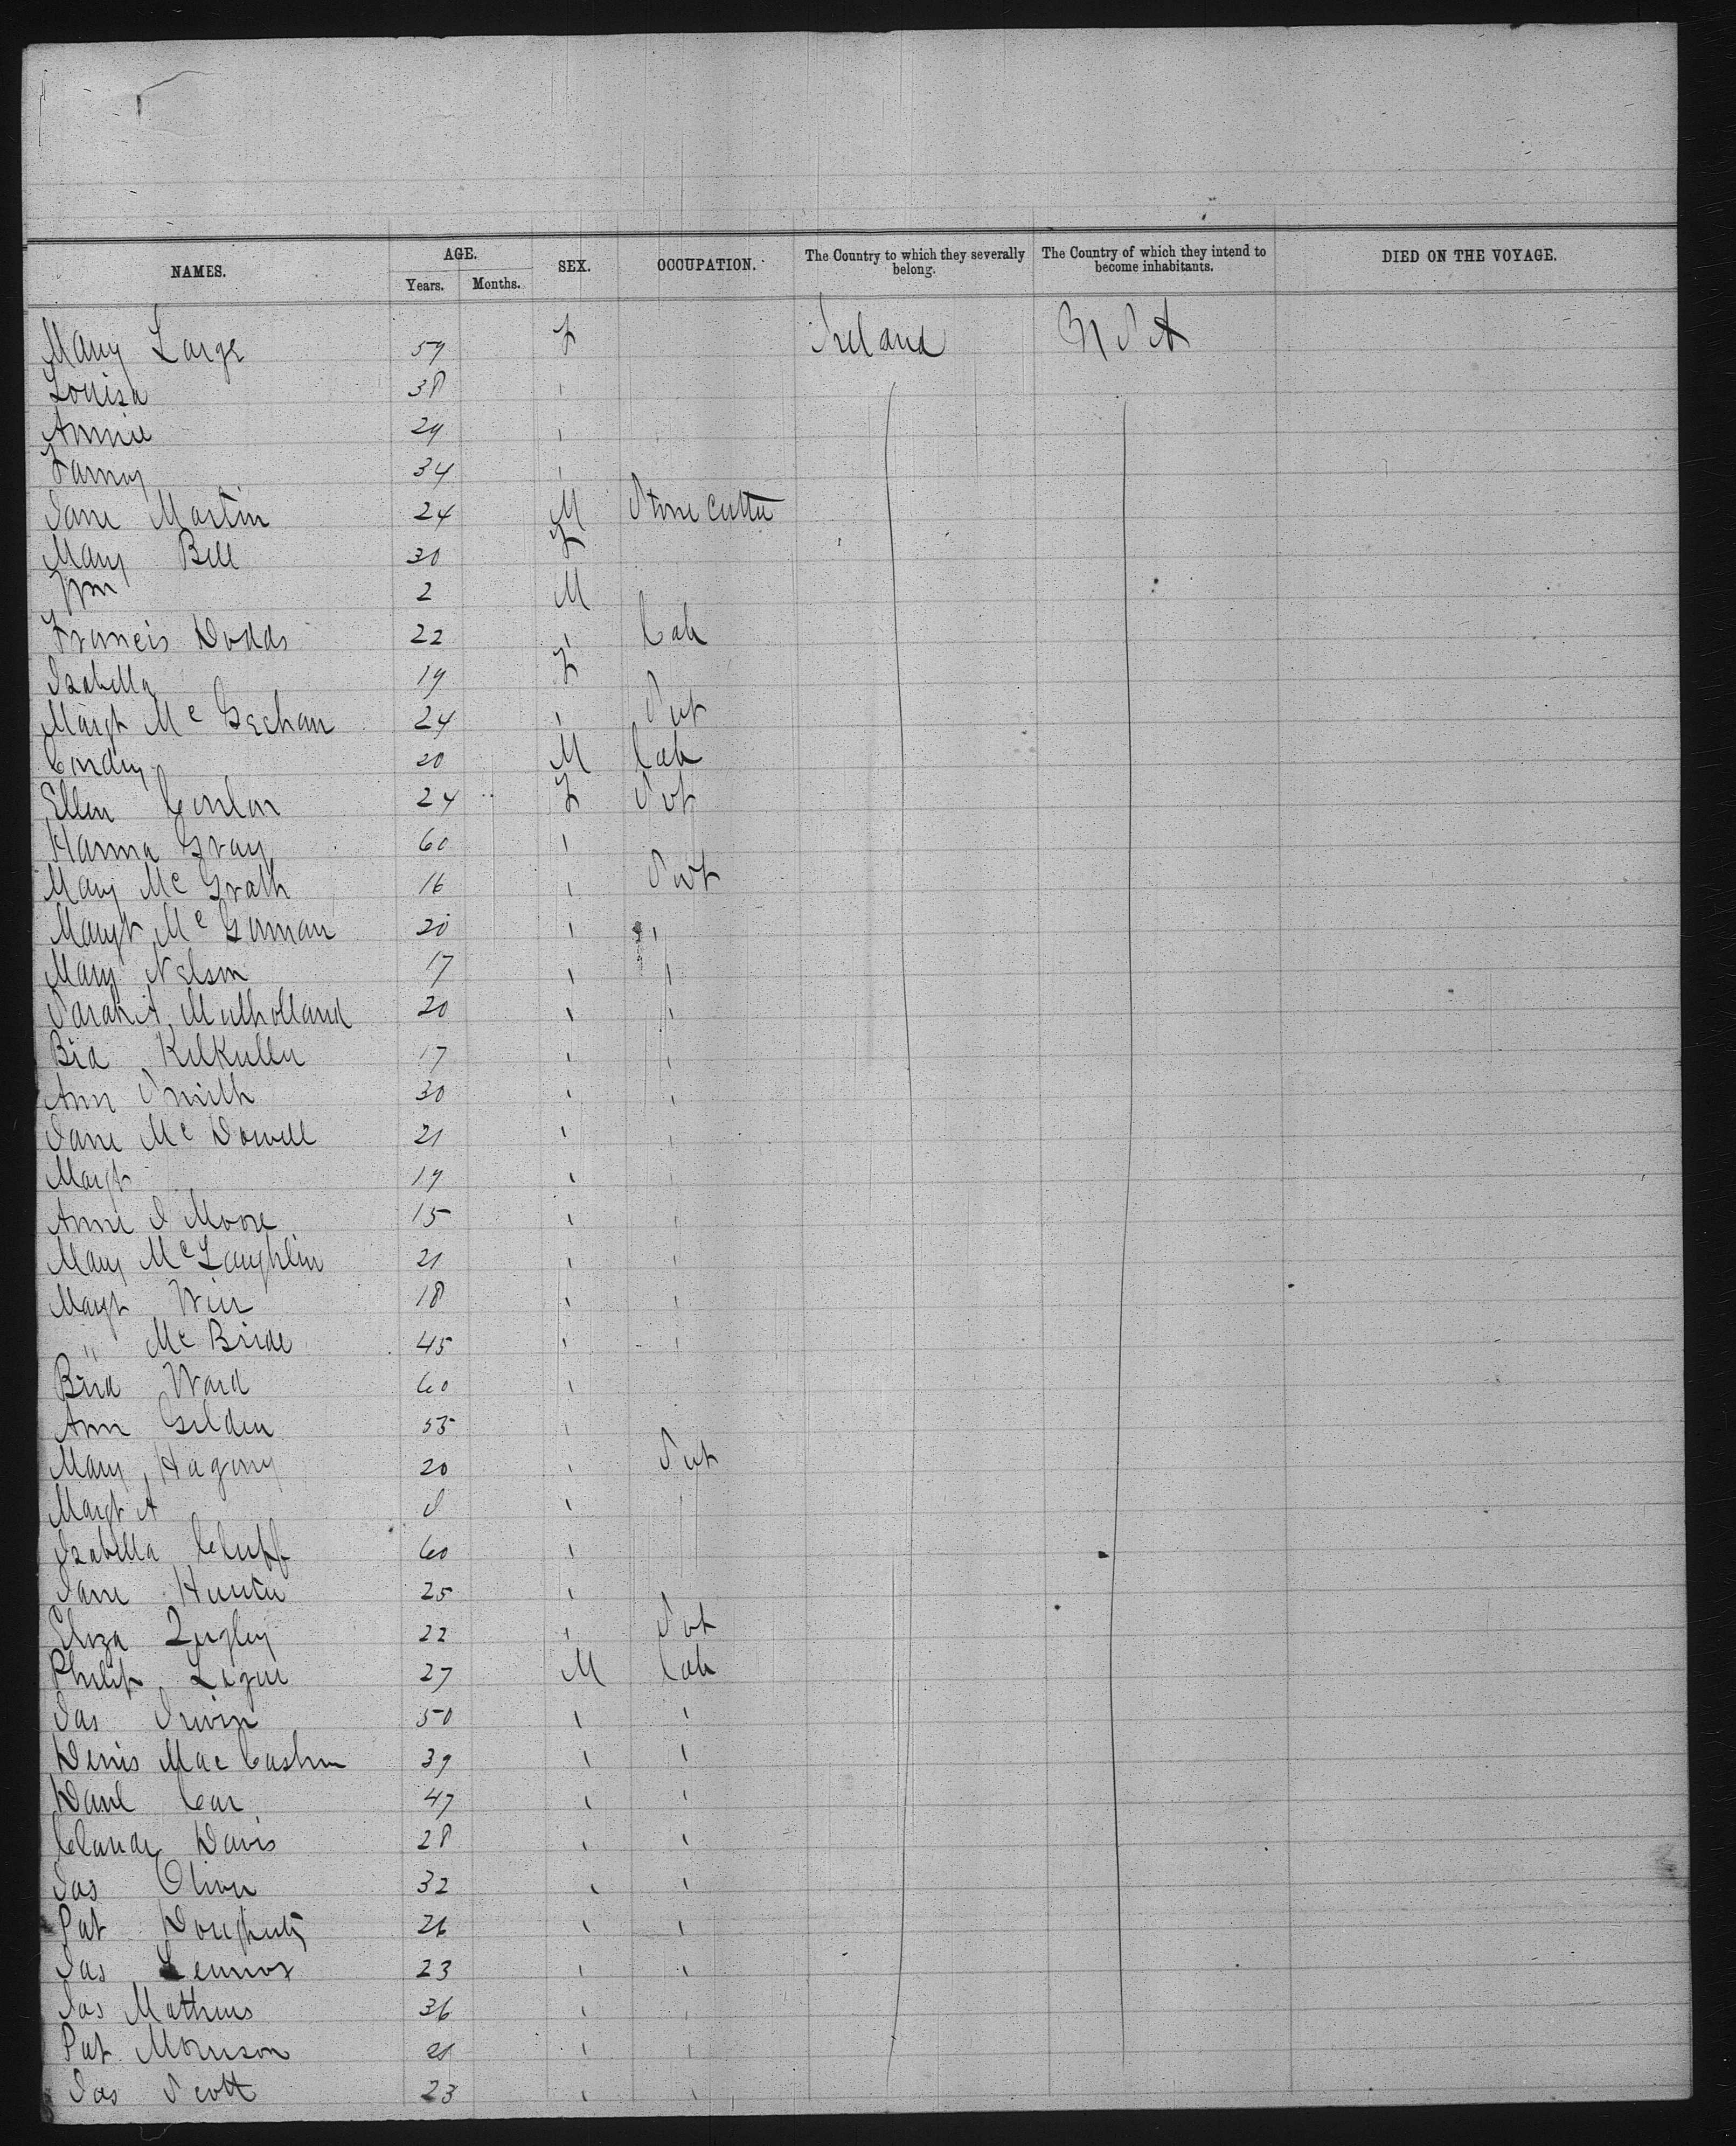 NAMES. AGE. SEX. OCCUPATION. The Country to which they severally belong. The Country of which they intend to become inhabitants. DIED ON THE VOYAGE.
Years. Months.
Mary Large 59 F Ireland U S A
Louisa 38 "
Annie 29 "
Fanny 34 "
Jane Martin 24 M Stone cutter
Mary Bell 30 F
Wm 2 M
Francis Dodds 22 " Lab
Isabella 19 F
Margt Mc Geehan 24 " Svt
20 M Lab
Ellen Conlon 24 F Svt
Hanna Gray 60 "
Mary Mc Grath 16 " Svt
Margt Mc Gurnan 20 " "
Mary Nelson 17 " "
Sarah A Mulholland 20 " "
Bid Kilkullen 17 " "
Ann Smith 30 " "
Jane Mc Dowell 21 " "
Margt 19 " "
Anne J Moore 15 " "
Mary McLaughlin 21 " "
Margt Weir 18 " "
" Mc Bride 45 " "
Brid Ward 60 "
Ann Gilden 55 "
Mary Hagerry 20 " Svt
Margt A "
Isabella Cluff 60 "
Jane Hunter 25 "
Eliza Quigley 22 " Svt
Philip Logue 27 M Lab
Jas Irwin 50 " "
Denis Mac Cashin 39 " "
Danl Carr 47 " "
Claude Davis 28 " "
Jas Oliver 32 " "
Pat Dougherty 26 " "
Jas Lennox 23 " "
Jos Mathews 36 " "
Pat Morrison 21 " "
Jas Scott 23 " "